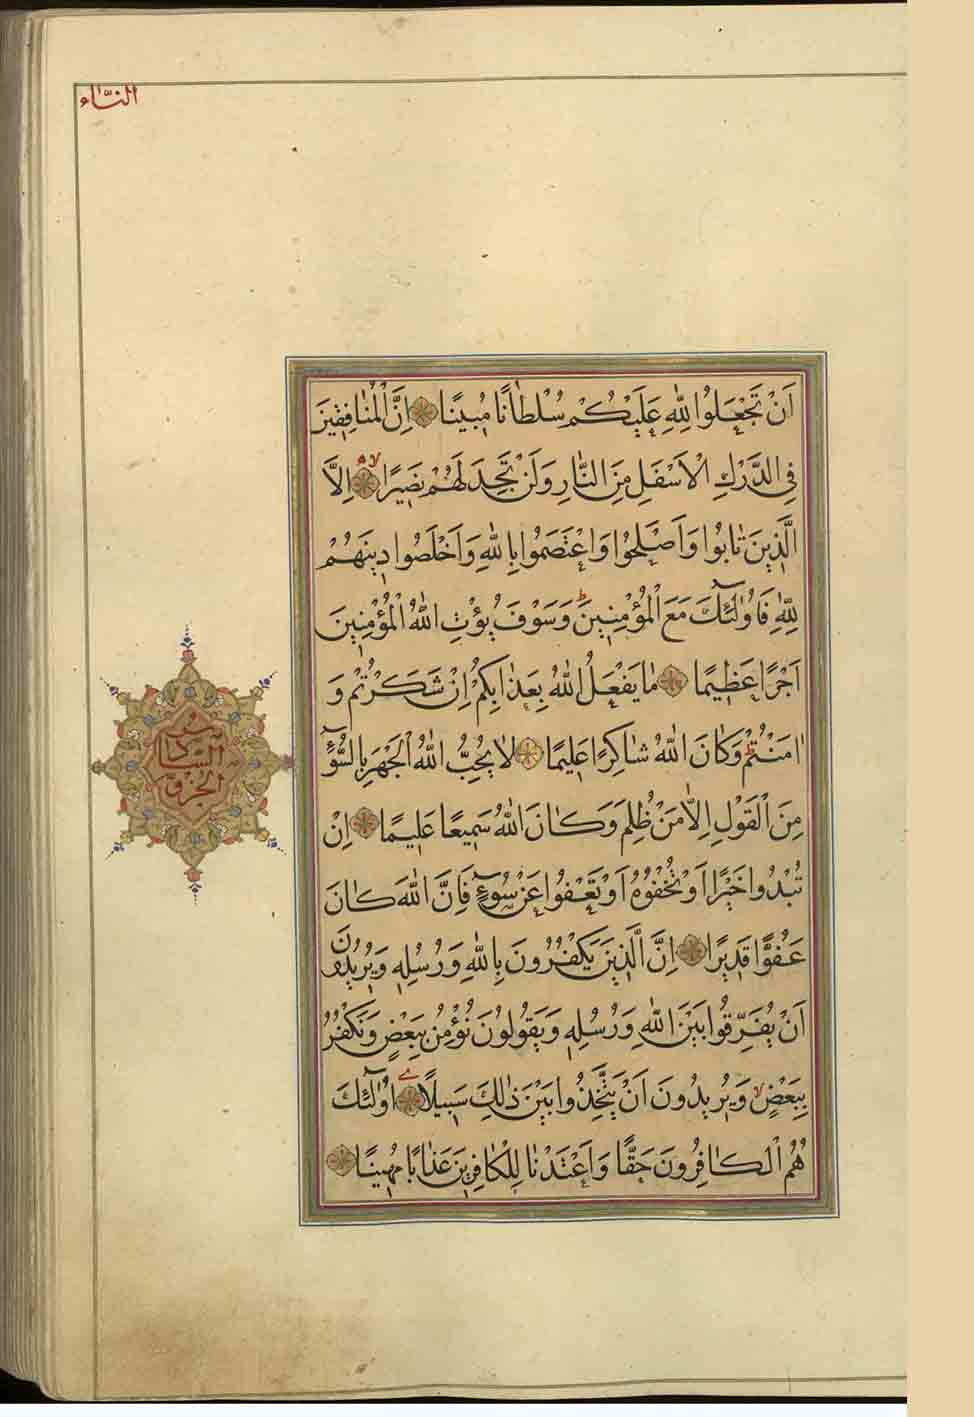 النسّاء
اَنْ تَجْعَلُوا لِلّٰهِ عَلَيْكُمْ سُلْطَانًا مُبينًا اِنَّ الْمُنَافِقِينَ
فِي الدَّرْكِ الْاَسْفَلِ مِنَ النَّارِ وَلَنْ تَجِدَ لَهُمْ نَصِيرًا اِلَّا
الَّذِينَ تَابُوا وَاَصْلَحُوا وَاعْتَصَمُوا بِاللّٰهِ وَاَخْلَصُوا دِينَهُمْ
لِلّٰهِ فَاُولٰئِكَ مَعَ الْمُؤْمِنِينَ وَسَوْفَ يُؤْتِ اللّٰهُ الْمُؤْمِنِينَ
اَجْرًا عَظِيمًا مَا يَفْعَلُ اللّٰهُ بِعَذَابِكُمْ اِنْ شَكَرْتُمْ وَ
اٰمَنْتُمْ وَكَانَ اللّٰهُ شَاكِرًا عَلِيمًا لَا يُحِبُّ اللّٰهُ الْجَهْرَ بِالسُّوٓءِ
مِنَ الْقَوْلِ اِلَّا مَنْ ظُلِمَ وَكَانَ اللّٰهُ سَمِيعًا عَلِيمًا اِنْ
تُبْدُوا خَيْرًا اَوْ تُخْفُوهُ اَوْ تَعْفُوا عَنْ سُوٓءٍ فَاِنَّ اللّٰهَ كَانَ
عَفُوًّا قَدِيرًا اِنَّ الَّذِينَ يَكْفُرُونَ بِاللّٰهِ وَرُسُلِهِ وَيُرِيدُونَ
اَنْ يُفَرِّقُوا بَيْنَ اللّٰهِ وَرُسُلِهِ وَيَقُولُونَ نُؤْمِنُ بِبَعْضٍ وَنَكْفُرُ
بِبَعْضٍ وَيُرِيدُونَ اَنْ يَتَّخِذُوا بَيْنَ ذٰلِكَ سَبِيلًا اُولٰئِكَ
هُمُ الْكَافِرُونَ حَقًّا وَاَعْتَدْنَا لِلْكَافِرِينَ عَذَابًا مُهِينًا
الجزو
السادس